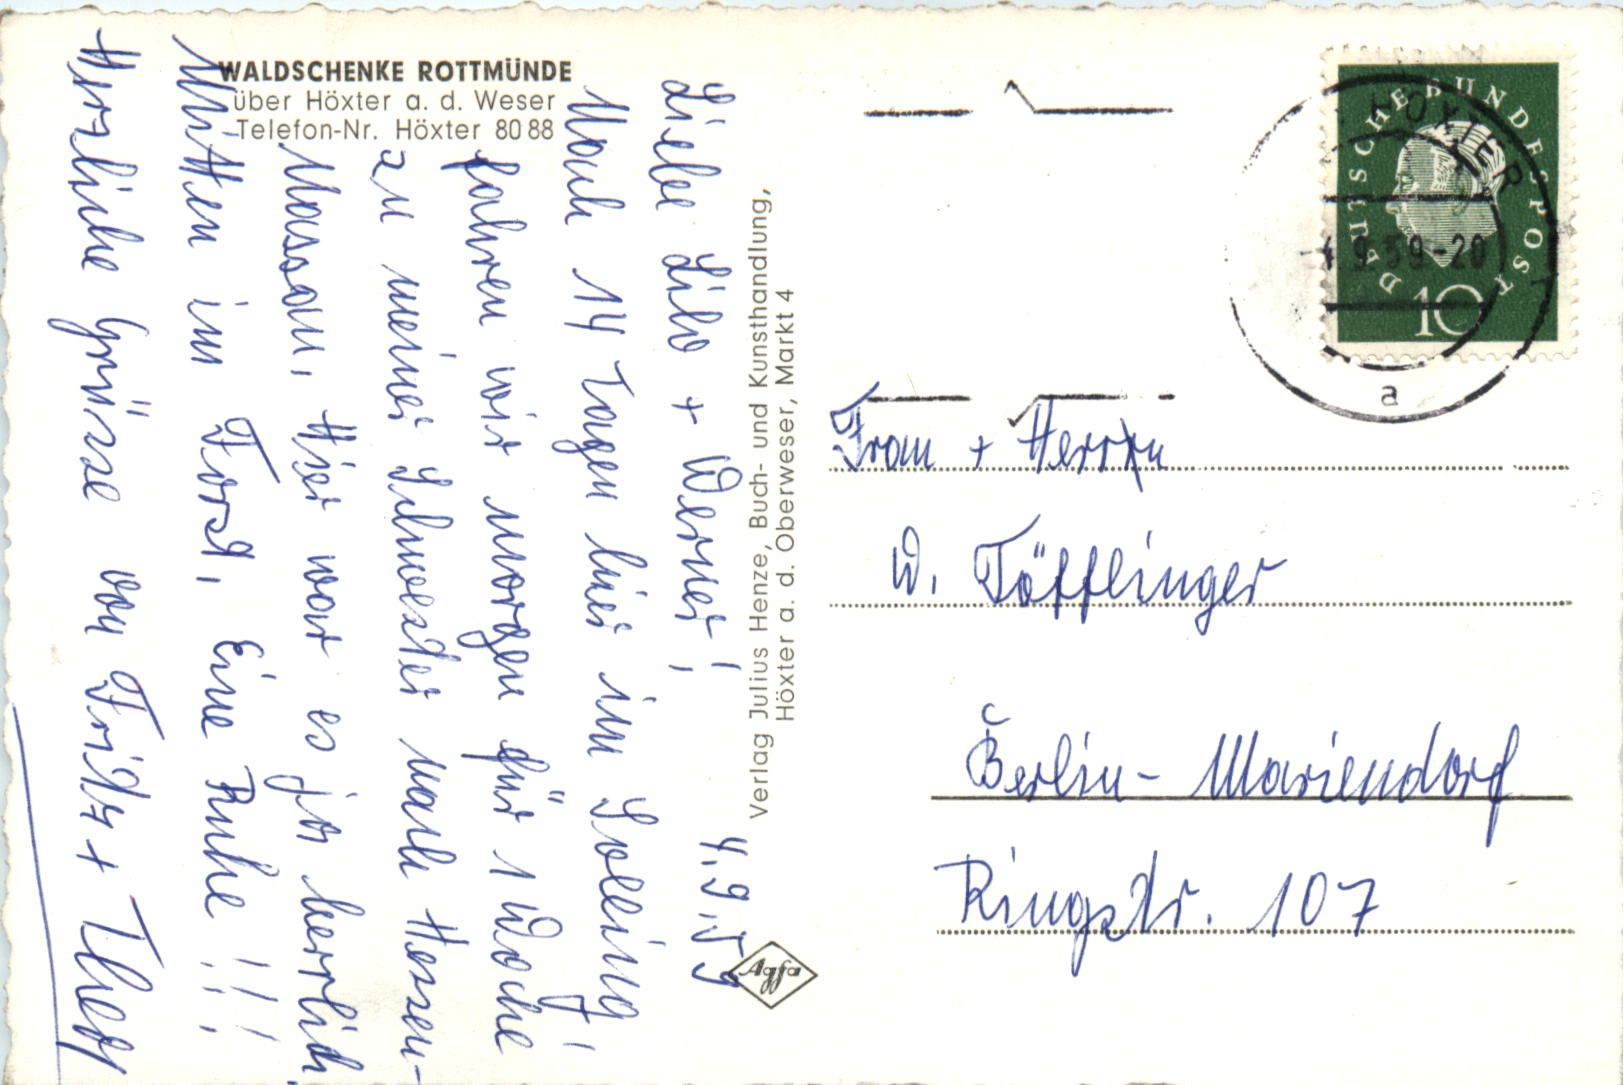 WALDSCHENKE ROTTMÜNDE
über Höxter a. d. Weser
Telefon-Nr. Höxter 8088
4.9.59
Liebe Lilo + Werner!,
Nach 14 Tagen hier im Solling!
fahren wir morgen für 1 Woche
zu meiner Schwester nach Hessen-
Nassau. Hier war es ja herrlich.
Mitten im Forst. Eine Ruhe!!!
Herzliche Grüsse von Fritz +
Verlag Julius Henze, Buch- und Kunsthandlung,
Höxter a. d. Oberweser, Markt 4
Agfa
DEUTSCHE BUNDESPOST
10
HÖXTER
4.9.59-20
a
Frau + Herrn
W. Töfflinger
Berlin-Mariendorf
Ringstr. 107